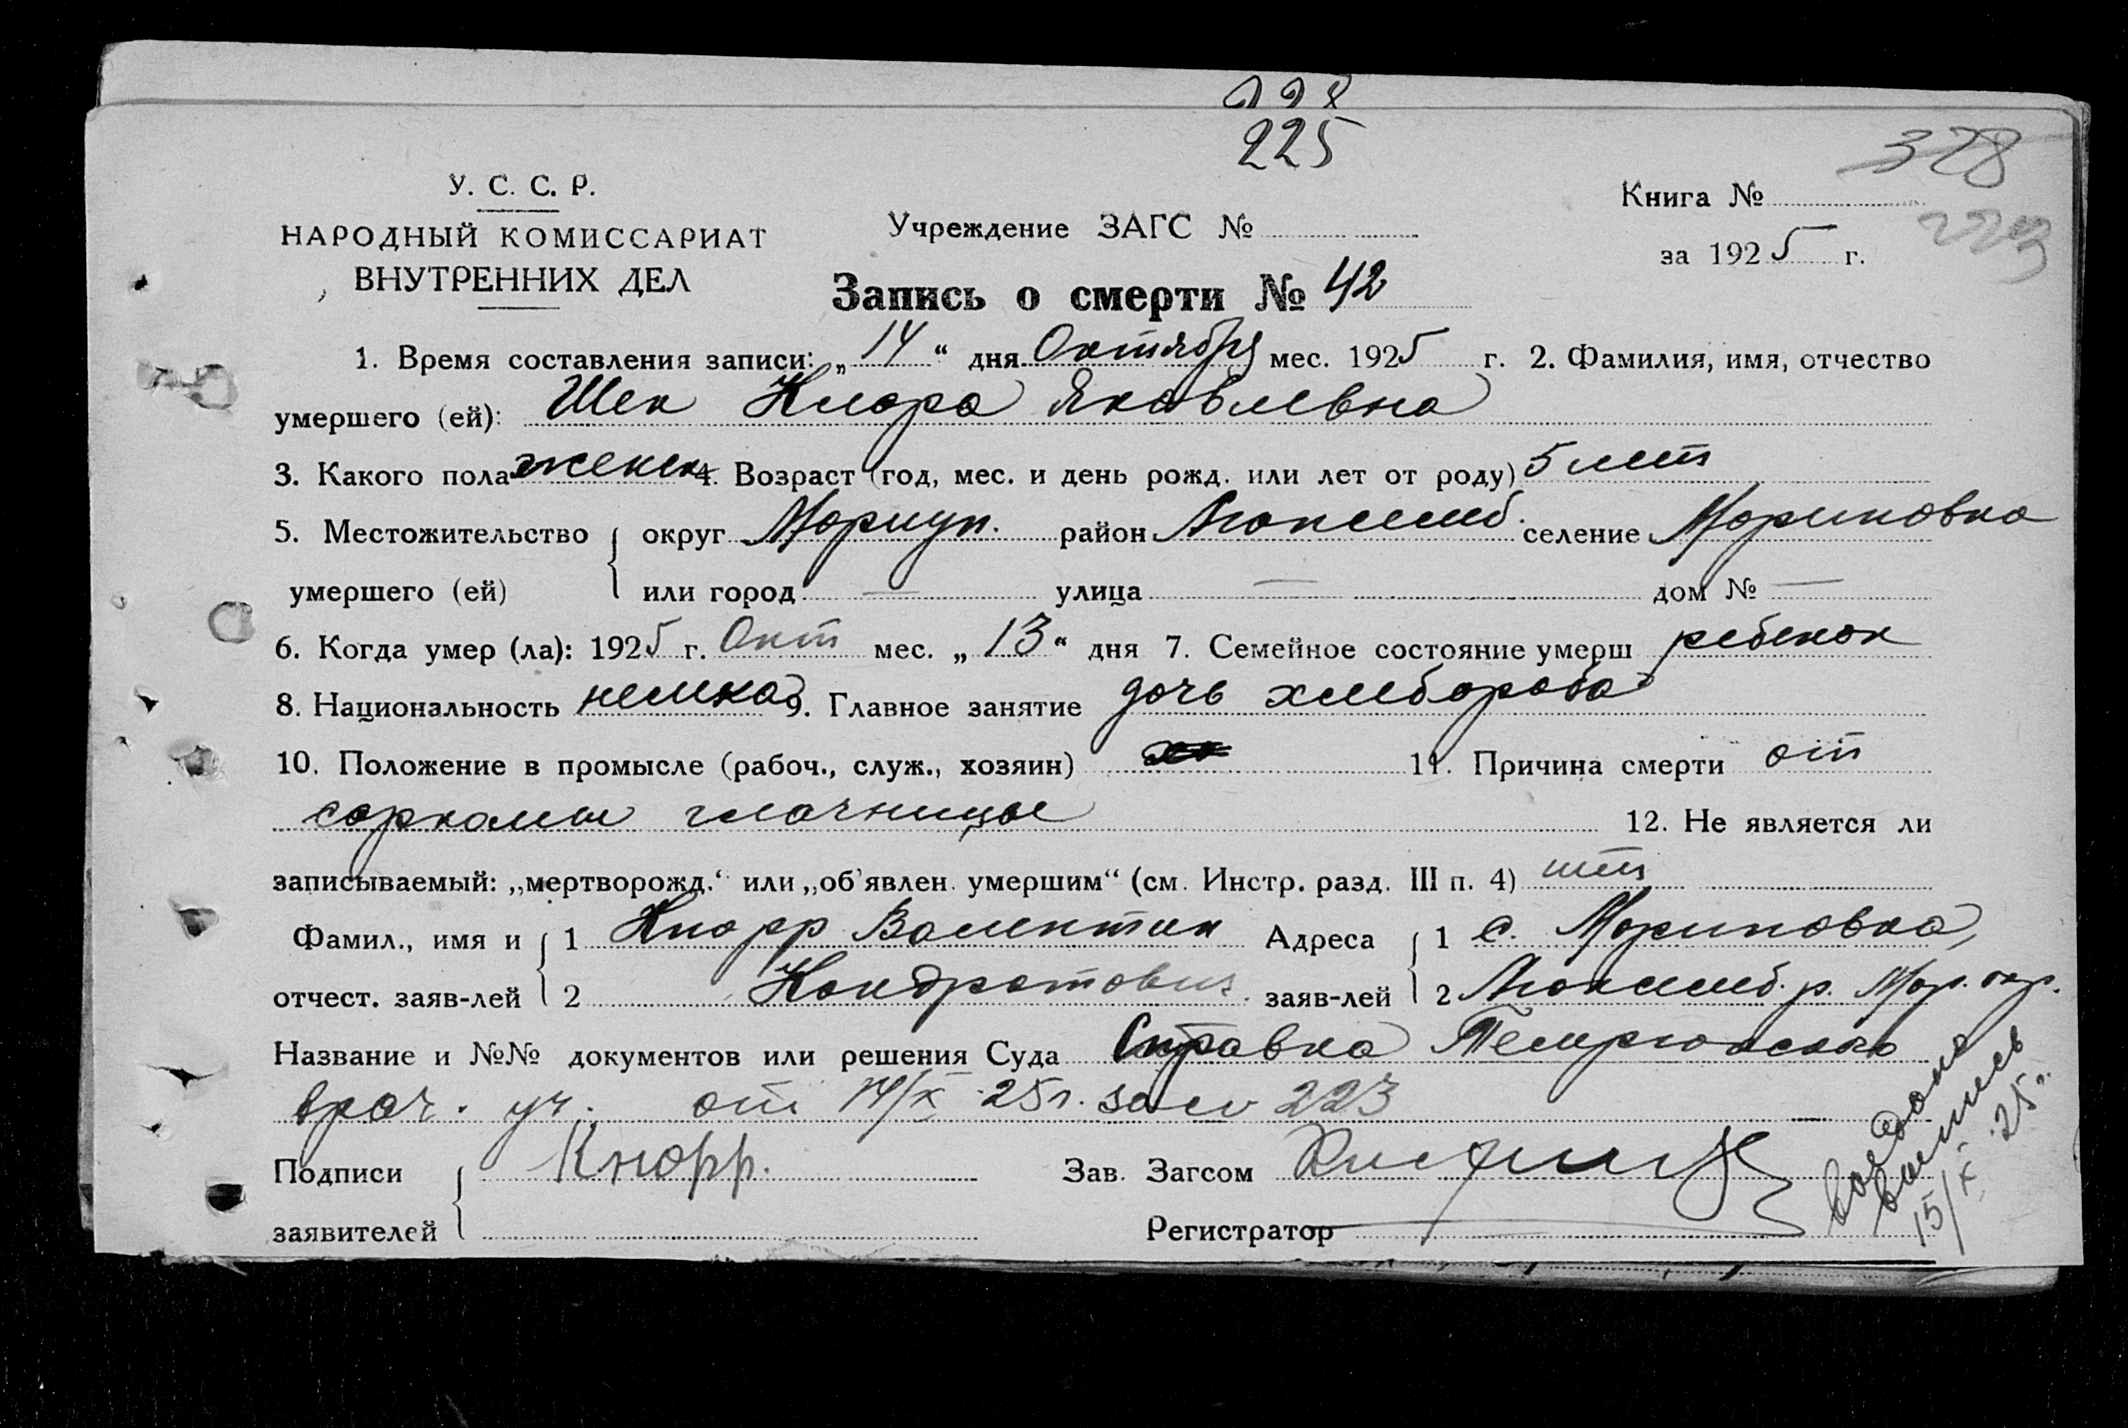 228
225
328
223
У. С. С. Р.
НАРОДНЫЙ КОМИССАРИАТ
ВНУТРЕННИХ ДЕЛ
Учреждение ЗАГС №
Книга №
за 1925 г.
Запись о смерти № 42
1. Время составления записи: „14“ дня Октября мес. 1925 г. 2. Фамилия, имя, отчество
умершего (ей): Шек Клара Яковлевна
3. Какого пола женск 4. Возраст (год, мес. и день рожд. или лет от роду) 5 лет
5. Местожительство округ Мариуп. район Люксемб. селение Мариновка
умершего (ей) или город — улица — дом № —
6. Когда умер (ла): 1925 г. Окт мес. „13“ дня 7. Семейное состояние умерш ребенок
8. Национальность немка 9. Главное занятие дочь хлебороба
10. Положение в промысле (рабоч., служ., хозяин) 11. Причина смерти от
саркомы глазницы
12. Не является ли
записываемый: „мертворожд.“ или „об'явлен. умершим“ (см. Инстр. разд. III п. 4) нет
Фамил., имя и 1 Кнорр Валентин Адреса 1 с. Мариновка,
отчест. заяв-лей 2 Кондратович. заяв-лей 2 Люксемб. р. Мар. окр.
Название и №№ документов или решения Суда Справка Темрюкского
врач. уч. от 14/X 25г. за № 223
Подписи Кнорр. Зав. Загсом
заявителей Регистратор
выдана
выпись
15/X 25г.